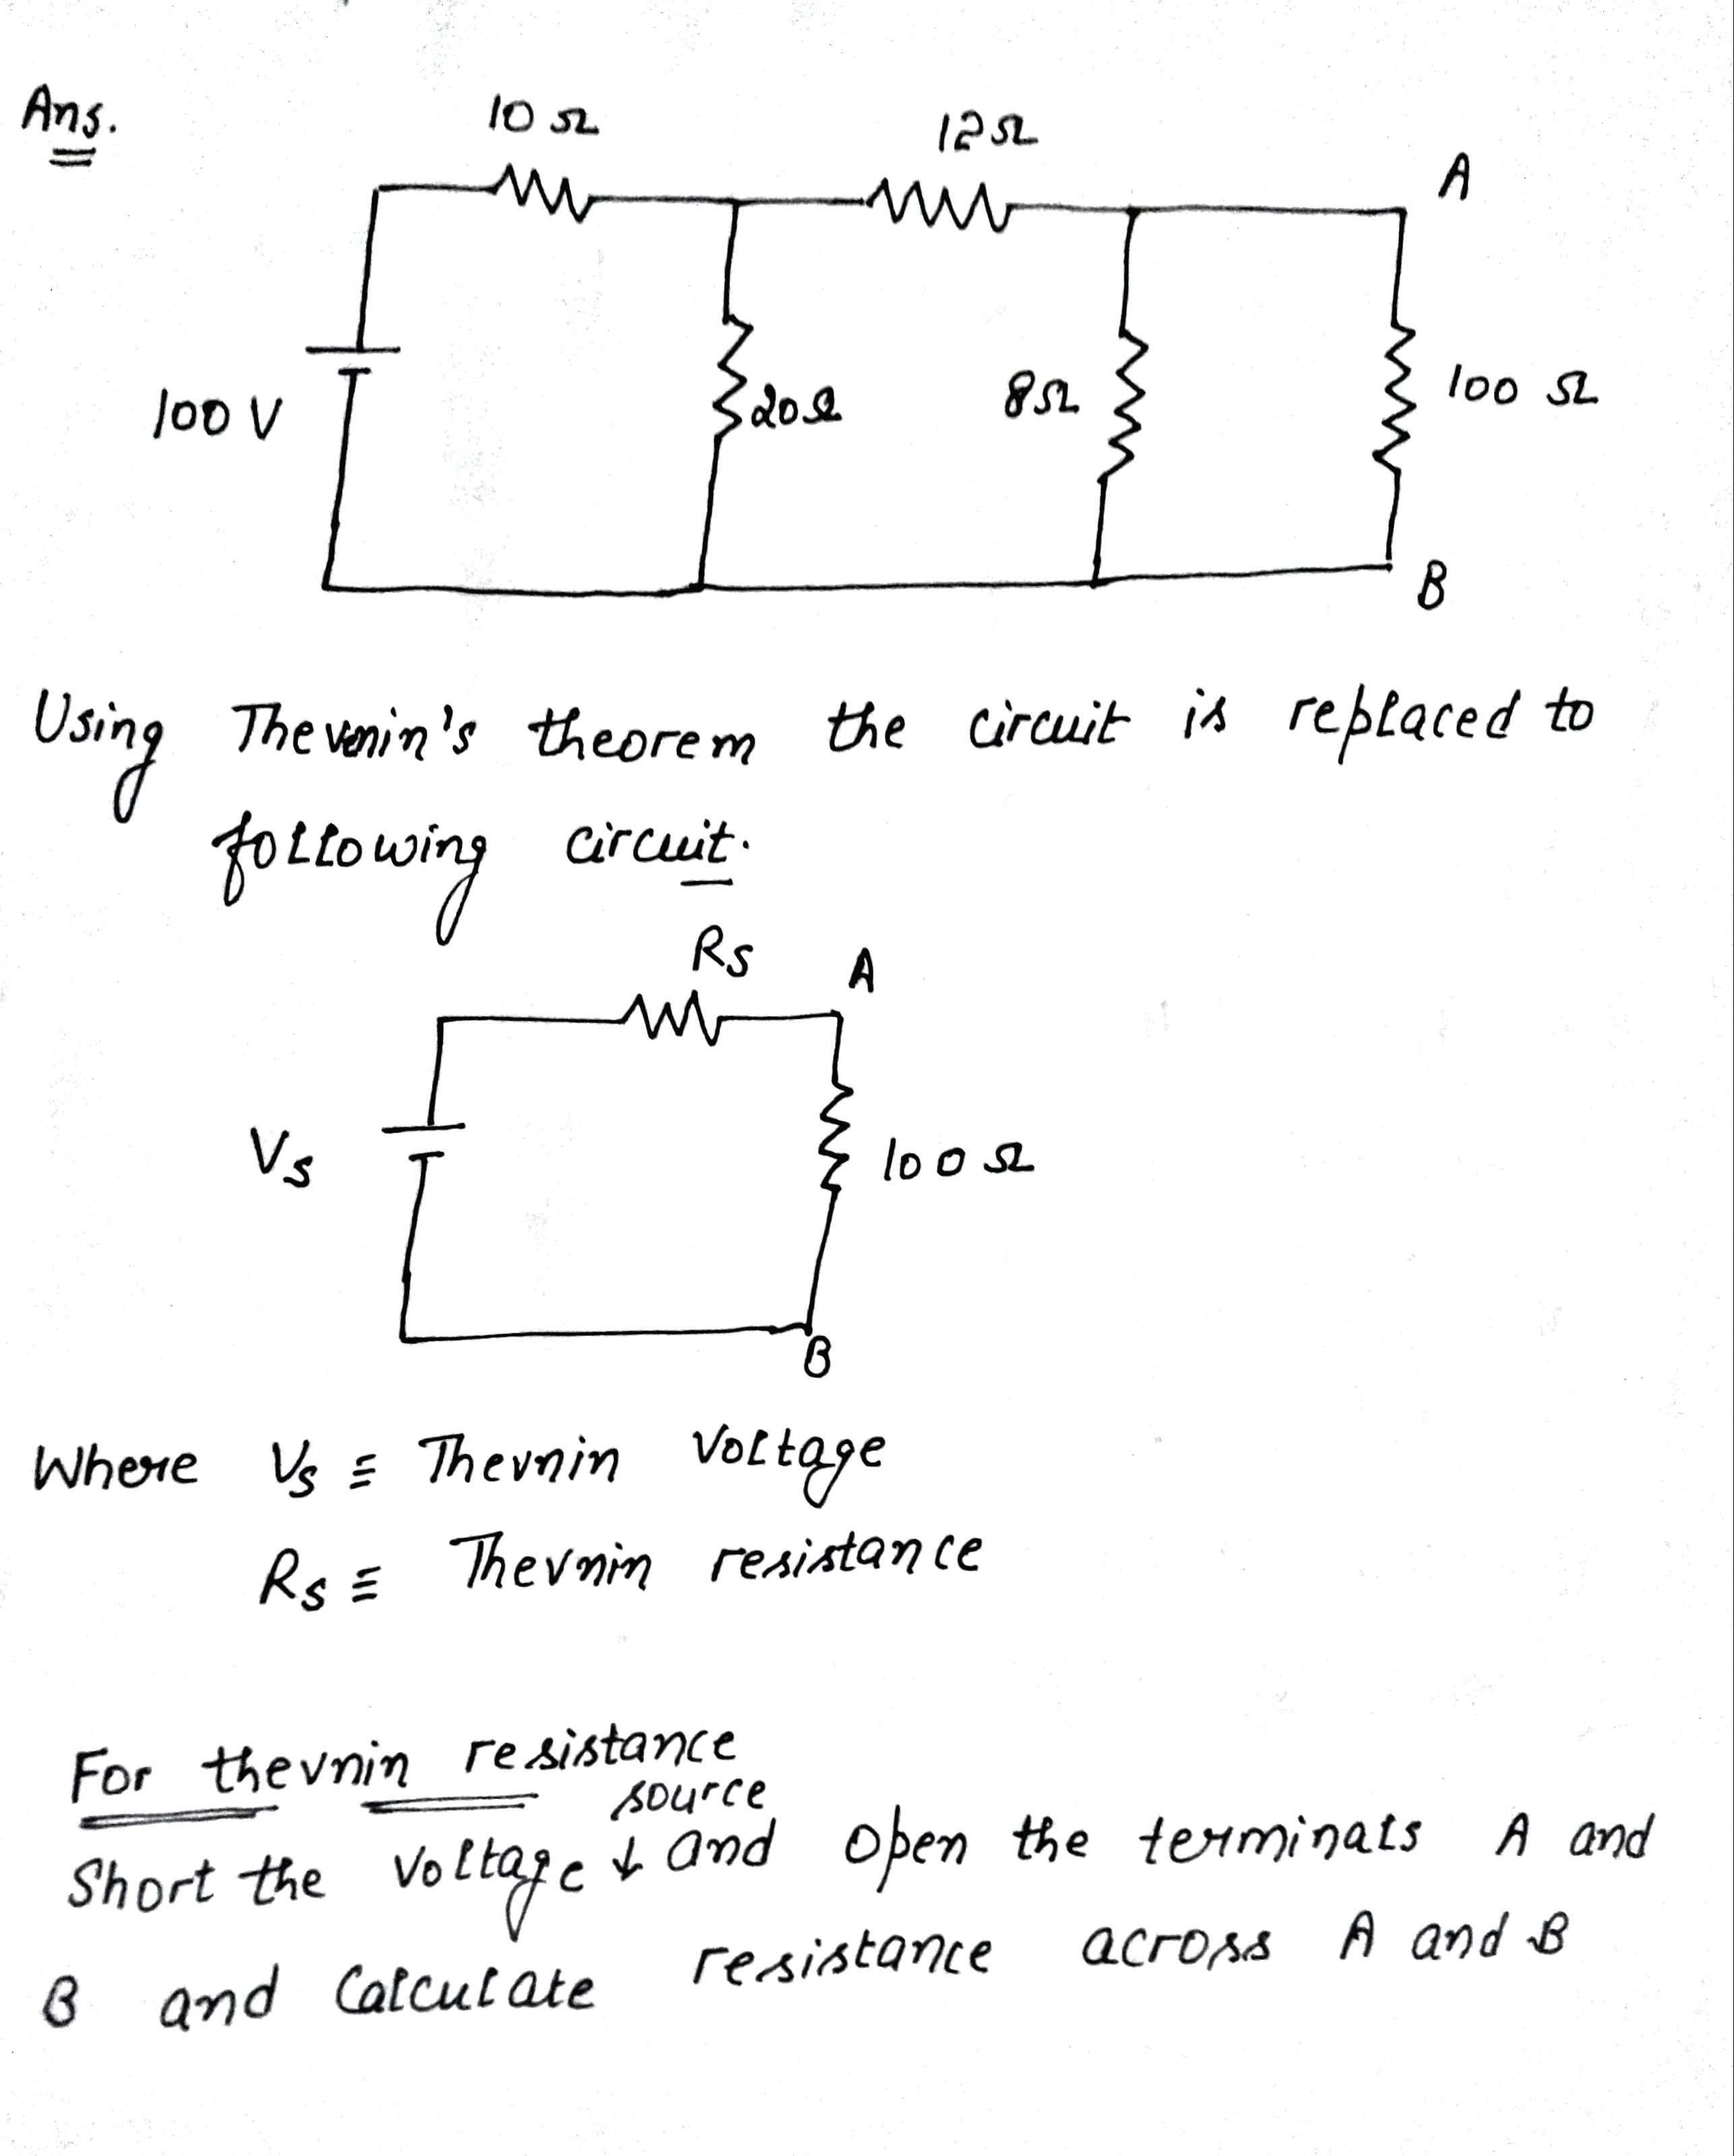 Ans.
10 Ω
12Ω
A
100 V
20Ω
8Ω
100 Ω
B
Using Thevenin's theorem the circuit is replaced to
following circuit.
Rs
A
Vs
100 Ω
B
Where Vs ≡ Thevnin Voltage
Rs ≡ Thevnin resistance
For thevnin resistance
source
Short the voltage ↓ and open the terminals A and
B and Calculate resistance across A and B